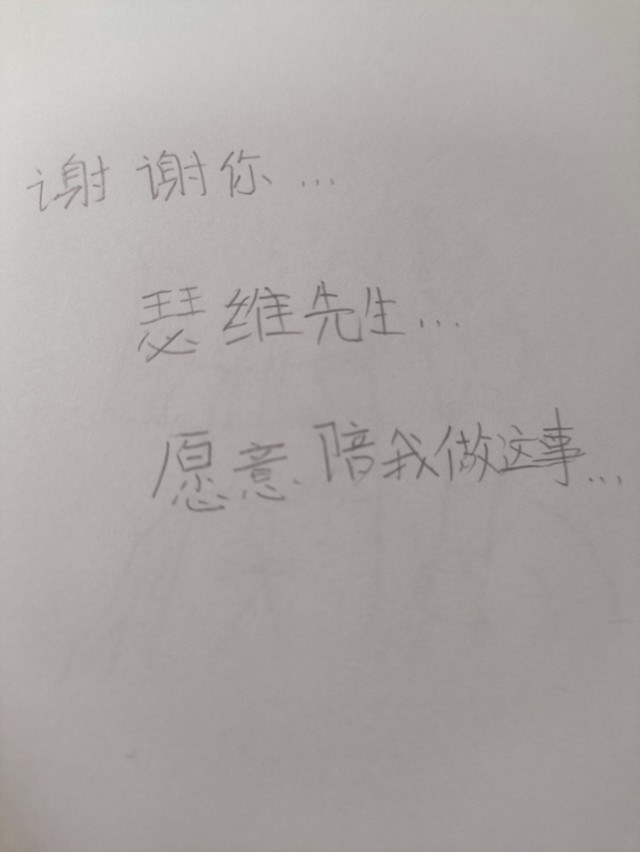 谢谢你...
瑟维先生...
愿意陪我做这事...